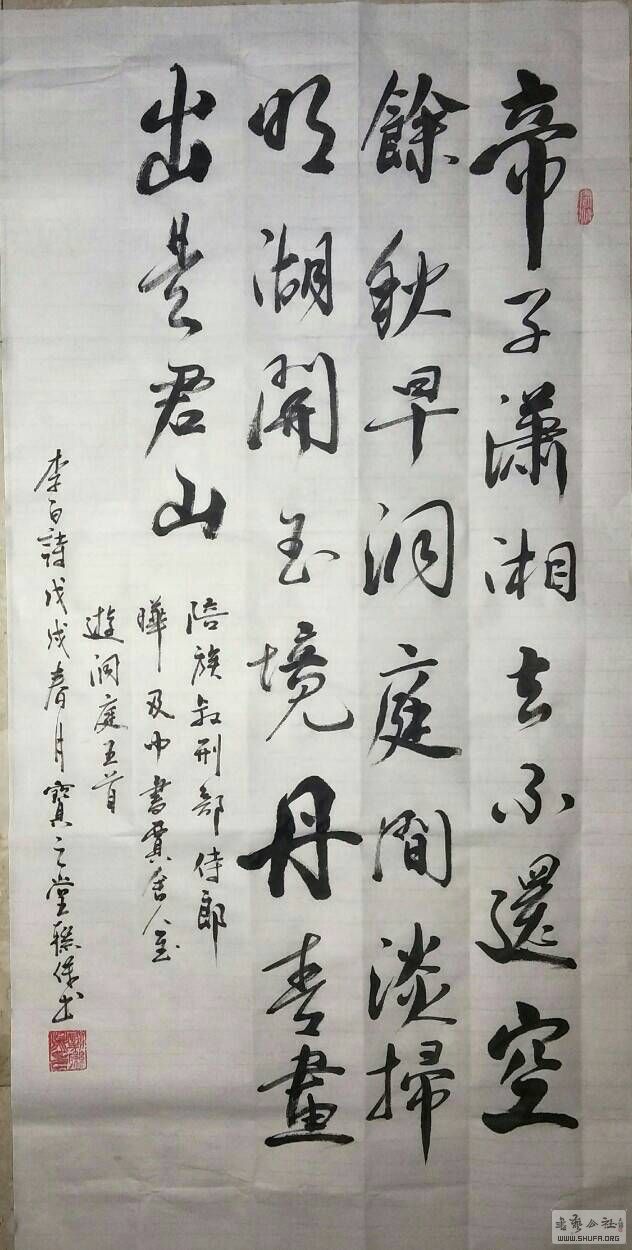 帝子瀟湘去不還空
餘秋早洞庭間淡掃
明湖開玉境丹青畫
出是君山
陪族叔刑部侍郎
曄及中書賈舍人至
遊洞庭五首
李白詩戊戌春月寶之堂保书
書藝公社
WWW.SHUFA.ORG